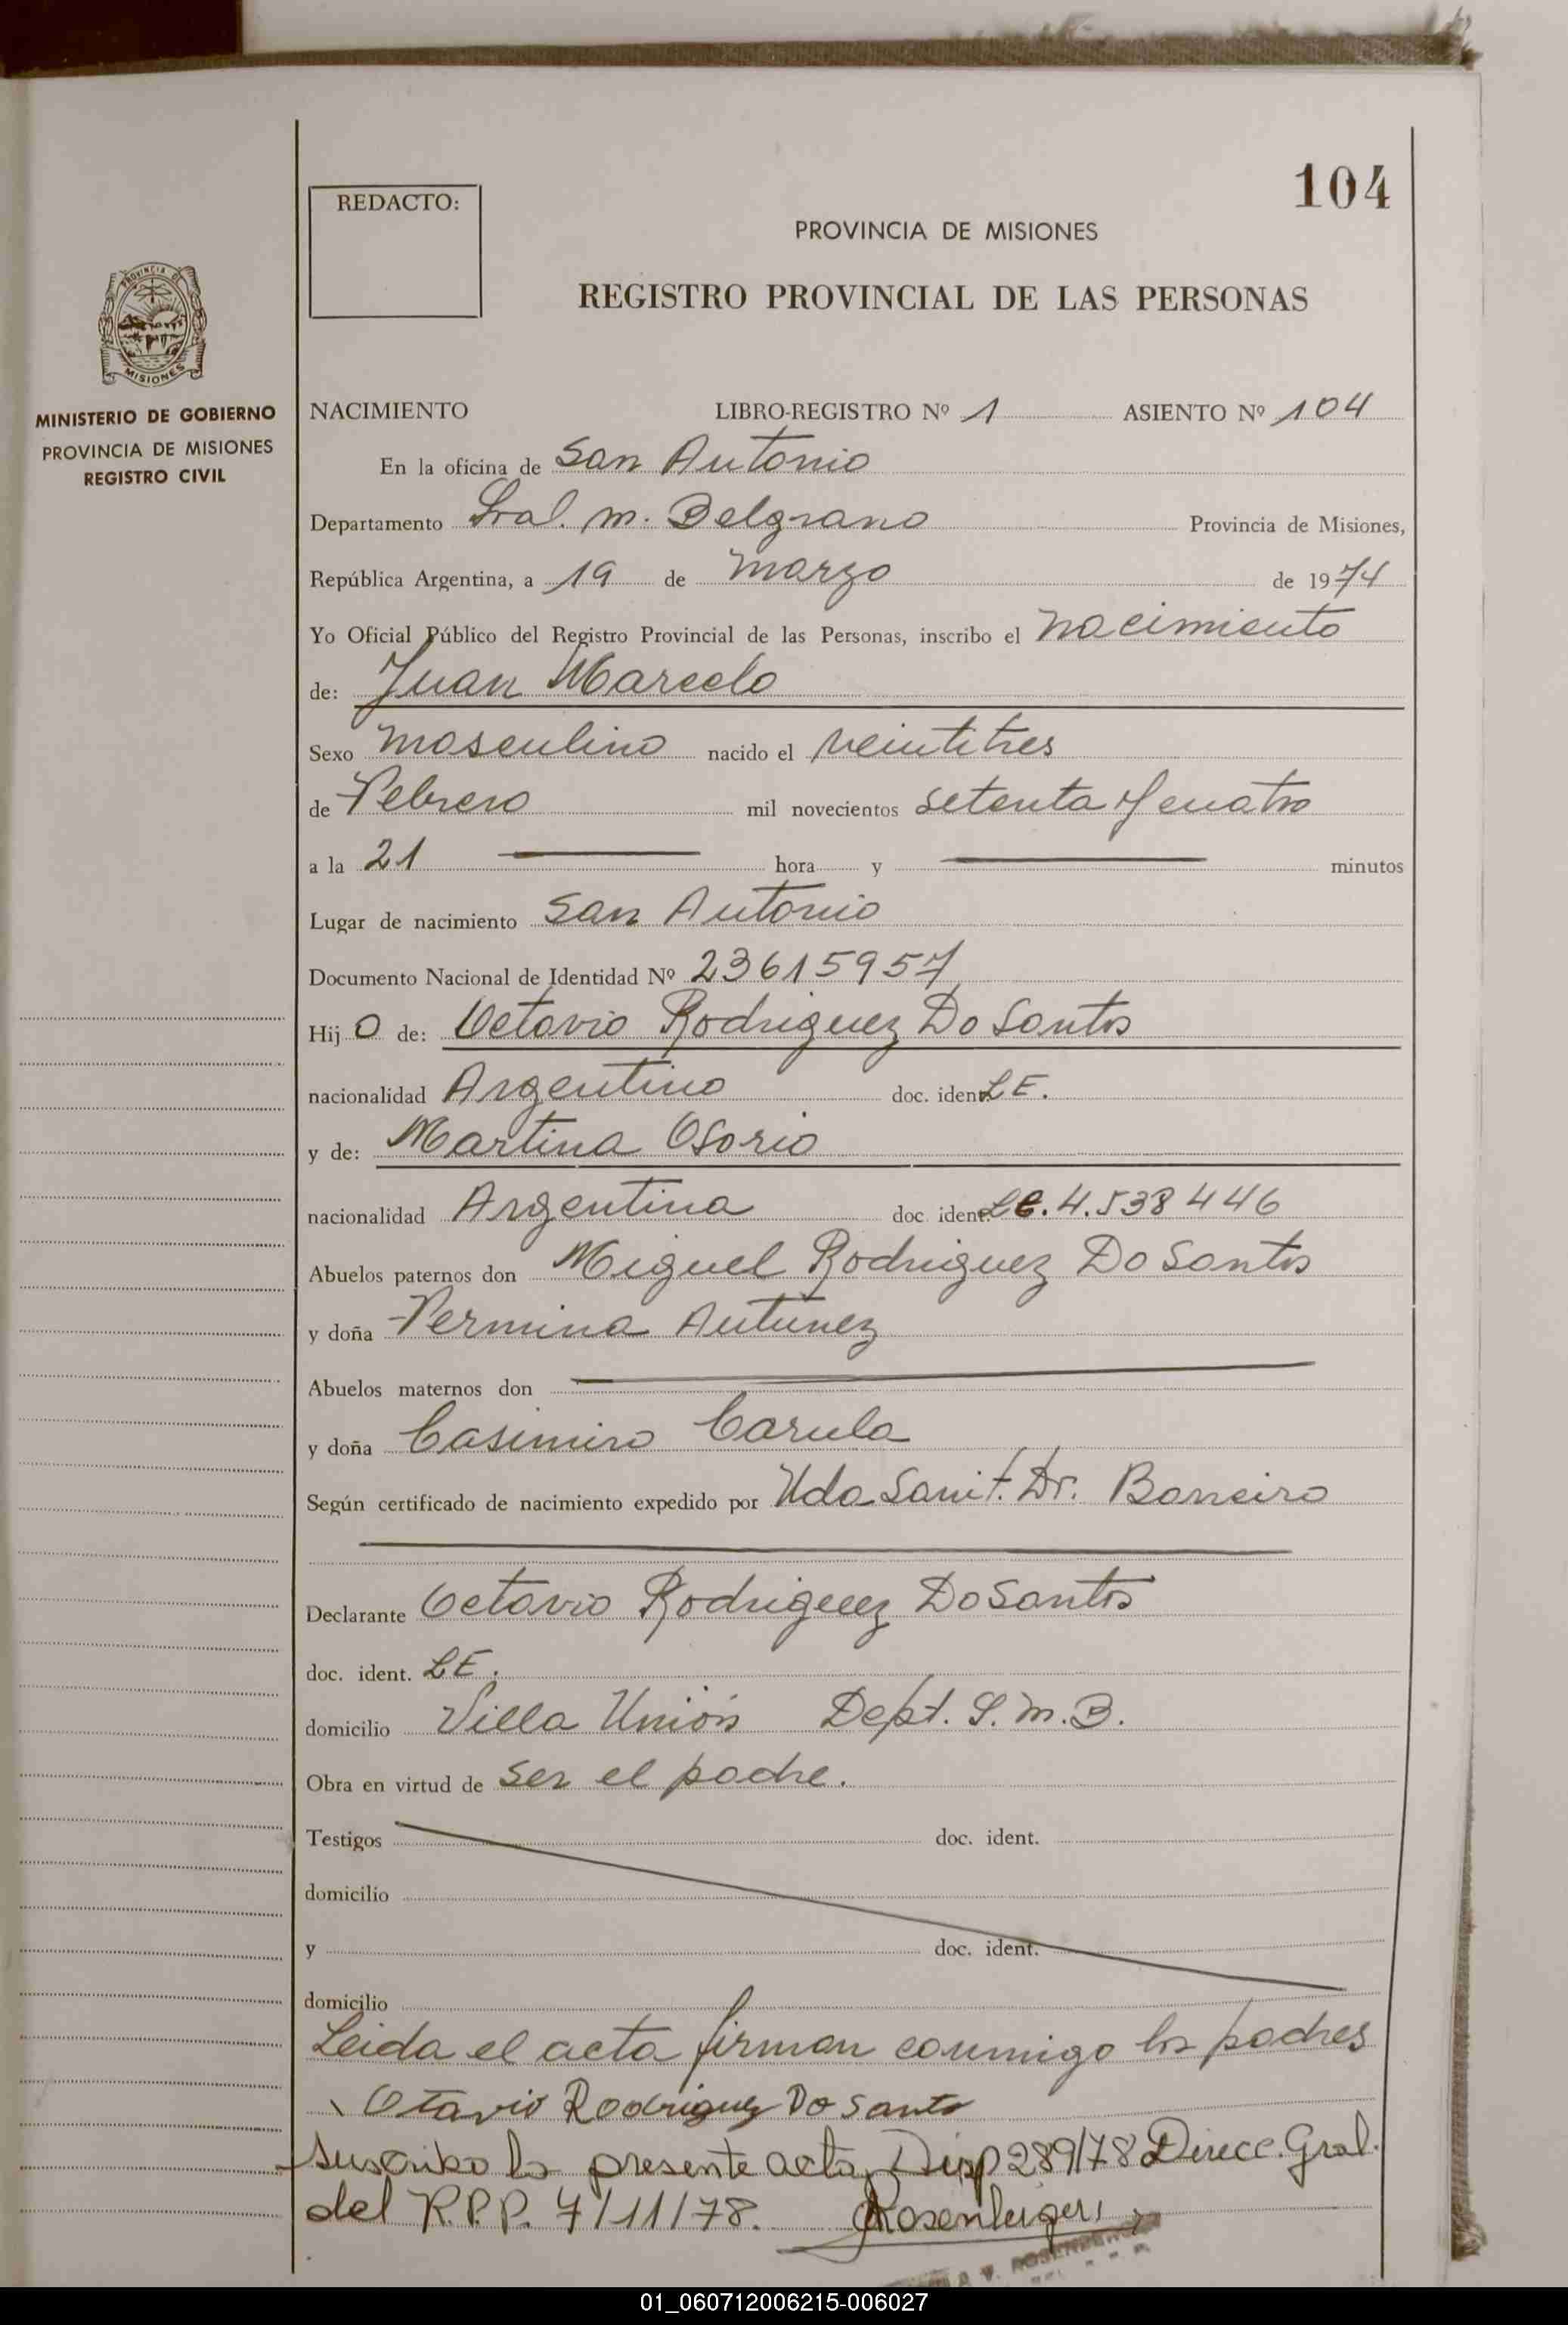 104
REDACTO:
PROVINCIA DE MISIONES
REGISTRO PROVINCIAL DE LAS PERSONAS
PROVINCIA DE
MISIONES
MINISTERIO DE GOBIERNO
PROVINCIA DE MISIONES
REGISTRO CIVIL
NACIMIENTO LIBRO-REGISTRO Nº 1 ASIENTO Nº 104
En la oficina de San Antonio
Departamento Gral. M. Belgrano Provincia de Misiones,
República Argentina, a 19 de Marzo de 1974
Yo Oficial Público del Registro Provincial de las Personas, inscribo el nacimiento
de: Juan Marcelo
Sexo masculino nacido el veintitres
de Febrero mil novecientos setenta y cuatro
a la 21 hora y minutos
Lugar de nacimiento San Antonio
Documento Nacional de Identidad Nº 23615957
Hijo de: Octavio Rodriguez Do Santos
nacionalidad Argentino doc. ident. LE.
y de: Martina Osorio
nacionalidad Argentina doc ident. LC. 4.538446
Abuelos paternos don Miguel Rodriguez Do Santos
y doña Fermina Antunez
Abuelos maternos don
y doña Casimiro Carula
Según certificado de nacimiento expedido por Uda Sanit. Dr. Barreiro
Declarante Octavio Rodriguez Do Santos
doc. ident. LE.
domicilio Villa Unión Dept. G.M.B.
Obra en virtud de ser el padre.
Testigos doc. ident.
domicilio
y doc. ident.
domicilio
Leida el acta firman conmigo los padres
Otavio Rodriguez Do Santo
suscribo la presente acta, Disp 289/78 Direcc. Gral.
del R.P.P. 7/11/78.
01_060712006215-006027